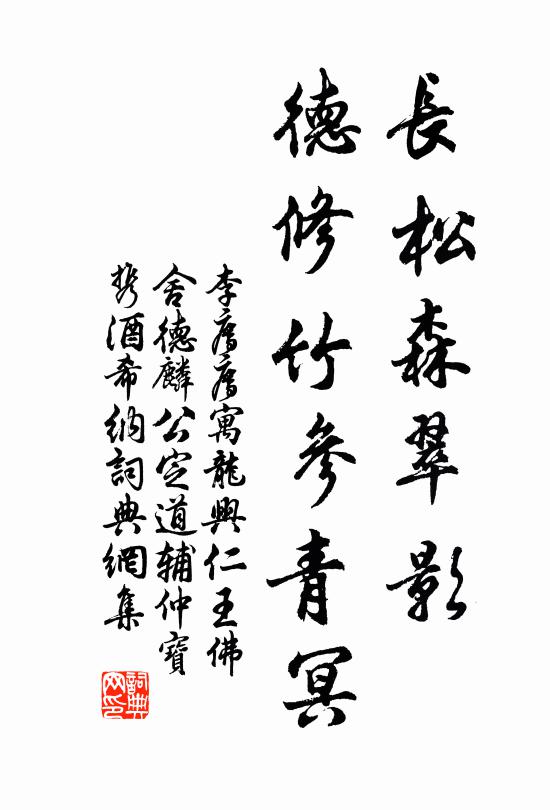 長松森翠影
德修竹參青冥
李廌廌寓龍興仁王佛
舍德麟公定道輔仲寶
携酒希納詞典網集
詞典
网印